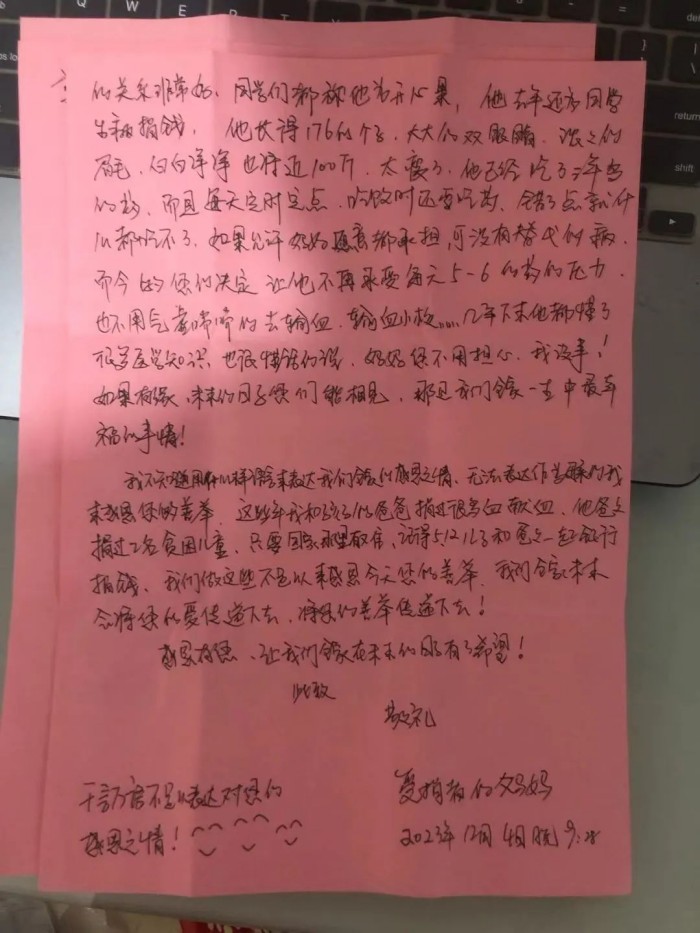 的关系非常好,同学们都称他为开心果,他去年还为同学
生病捐钱,他长得176的个子,大大的双眼睛,浓浓的
眉毛,白白净净也将近100斤,太瘦了,他已经吃了
的药,而且每天定时定点,吃饭时还要吃药,错了点就什
么都吃不了,如果允许妈妈愿意都承担,可没有替代的病,
而今 您的决定 让他不再承受每天5-6 的药的压力,
也不用气喘嘘嘘的去输血,输血小板……几年下来他都懂了
很多医学知识,也很懂话的说,妈妈您不用担心,我没事!
如果有缘,未来的日子你们能相见,那是我们全家一生中最幸
福的事情!
我不知道用什么样语言来表达我们全家的感恩之情,无法表达作为 的我
来感恩您的善举,这些年我和孩子的爸爸捐过很多血献血,他爸爸
捐过2名贫困儿童,只要国家 ,记得512儿子和爸爸一起银行
捐钱,我们做这些不足以来感恩今天您的善举,我们全家未来
会将您的爱传递下去,将您的善举传递下去!
感恩有您,让我们全家在未来的日子有了希望!
此致
敬礼
千言万语不足以表达对您的
感恩之情!
受捐者的妈妈
2023年12月4日晚9:28
return
shift